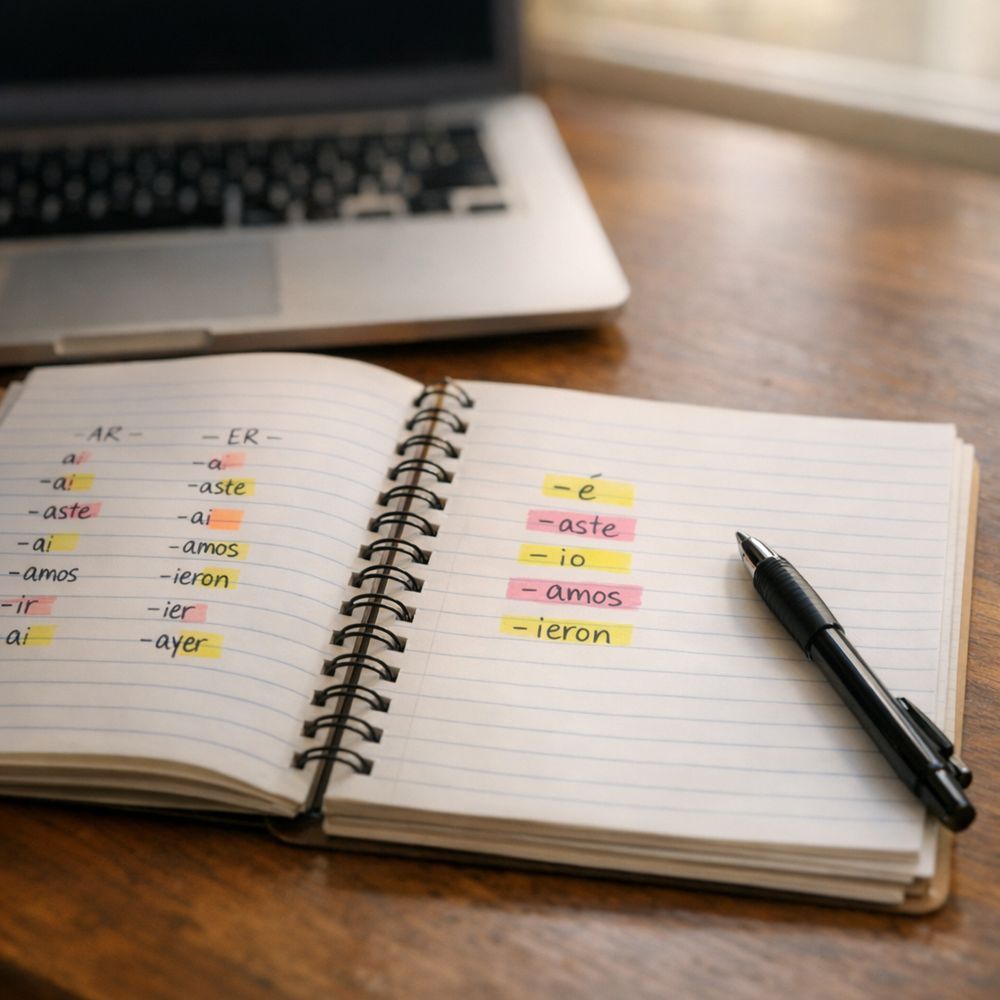 -AR-
ai
-ai
-aste
-ai
-amos
-ir
ai
-ER-
-ai
-aste
-ai
-amos
-ieron
-ier
-ayer
-é
-aste
-io
-amos
-ieron